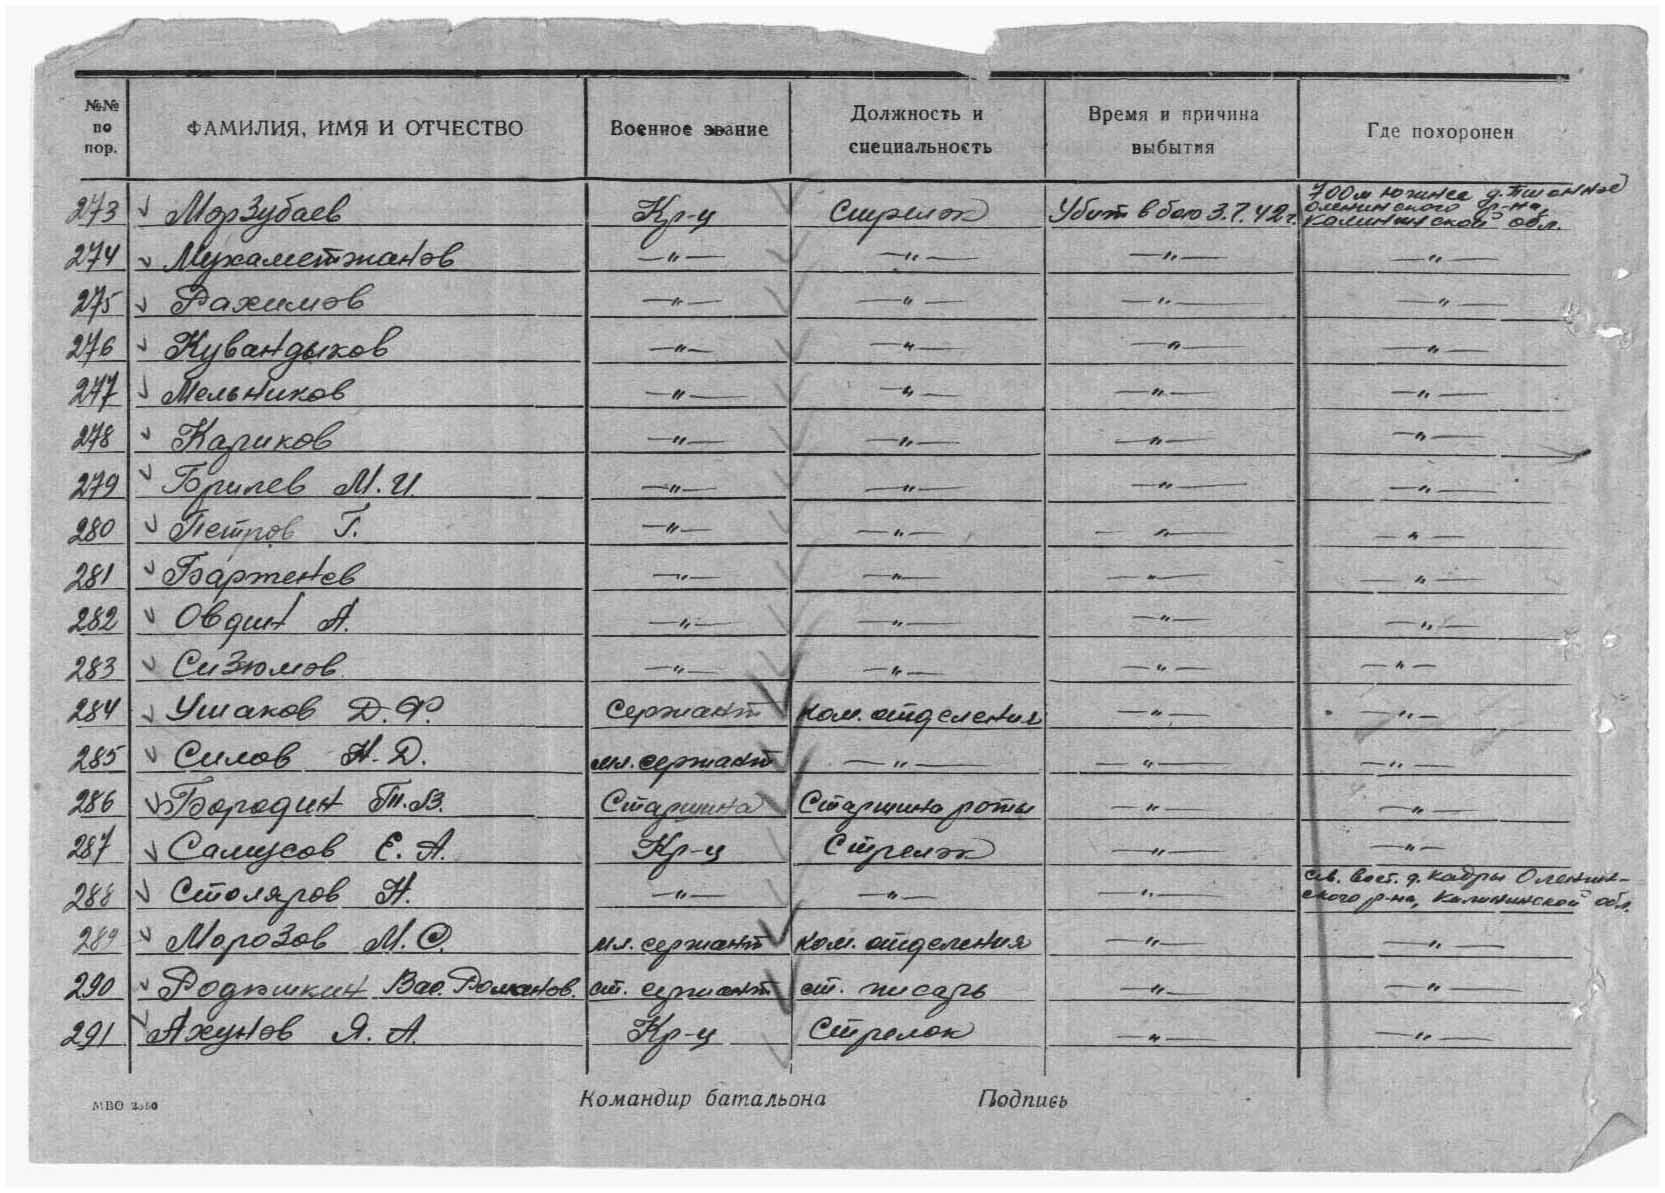 №№ по пор. ФАМИЛИЯ, ИМЯ И ОТЧЕСТВО Военное звание Должность и специальность Время и причина выбытия Где похоронен
273 Морзубаев Кр-ц Стрелок Убит в бою 3.7.42г. 700м южнее д. Пшонное Оленинского р-на, Калининской обл.
274 Мухаметжанов —"— —"— —"— —"—
275 Рахимов —"— —"— —"— —"—
276 Кувандыков —"— —"— —"— —"—
277 Мельников —"— —"— —"— —"—
278 Кариков —"— —"— —"— —"—
279 Брилев М.И. —"— —"— —"— —"—
280 Петров Г. —"— —"— —"— —"—
281 Бартенев —"— —"— —"— —"—
282 Овдин А. —"— —"— —"— —"—
283 Сизюмов —"— —"— —"— —"—
284 Ушаков Д.Ф. Сержант ком. отделения —"— —"—
285 Силов Н.Д. мл. сержант —"— —"— —"—
286 Бородин П.В. Старшина Старшина роты —"— —"—
287 Самусов Е.А. Кр-ц Стрелок —"— —"—
288 Столяров Н. —"— —"— —"— сев. вост. д. Кадры Оленинского р-на, Калининской обл.
289 Морозов М.С. мл. сержант ком. отделения —"— —"—
290 Родюшкин Вас. Романов. ст. сержант ст. писарь —"— —"—
291 Ахунов Я.А. Кр-ц Стрелок —"— —"—
МВО
Командир батальона Подпись